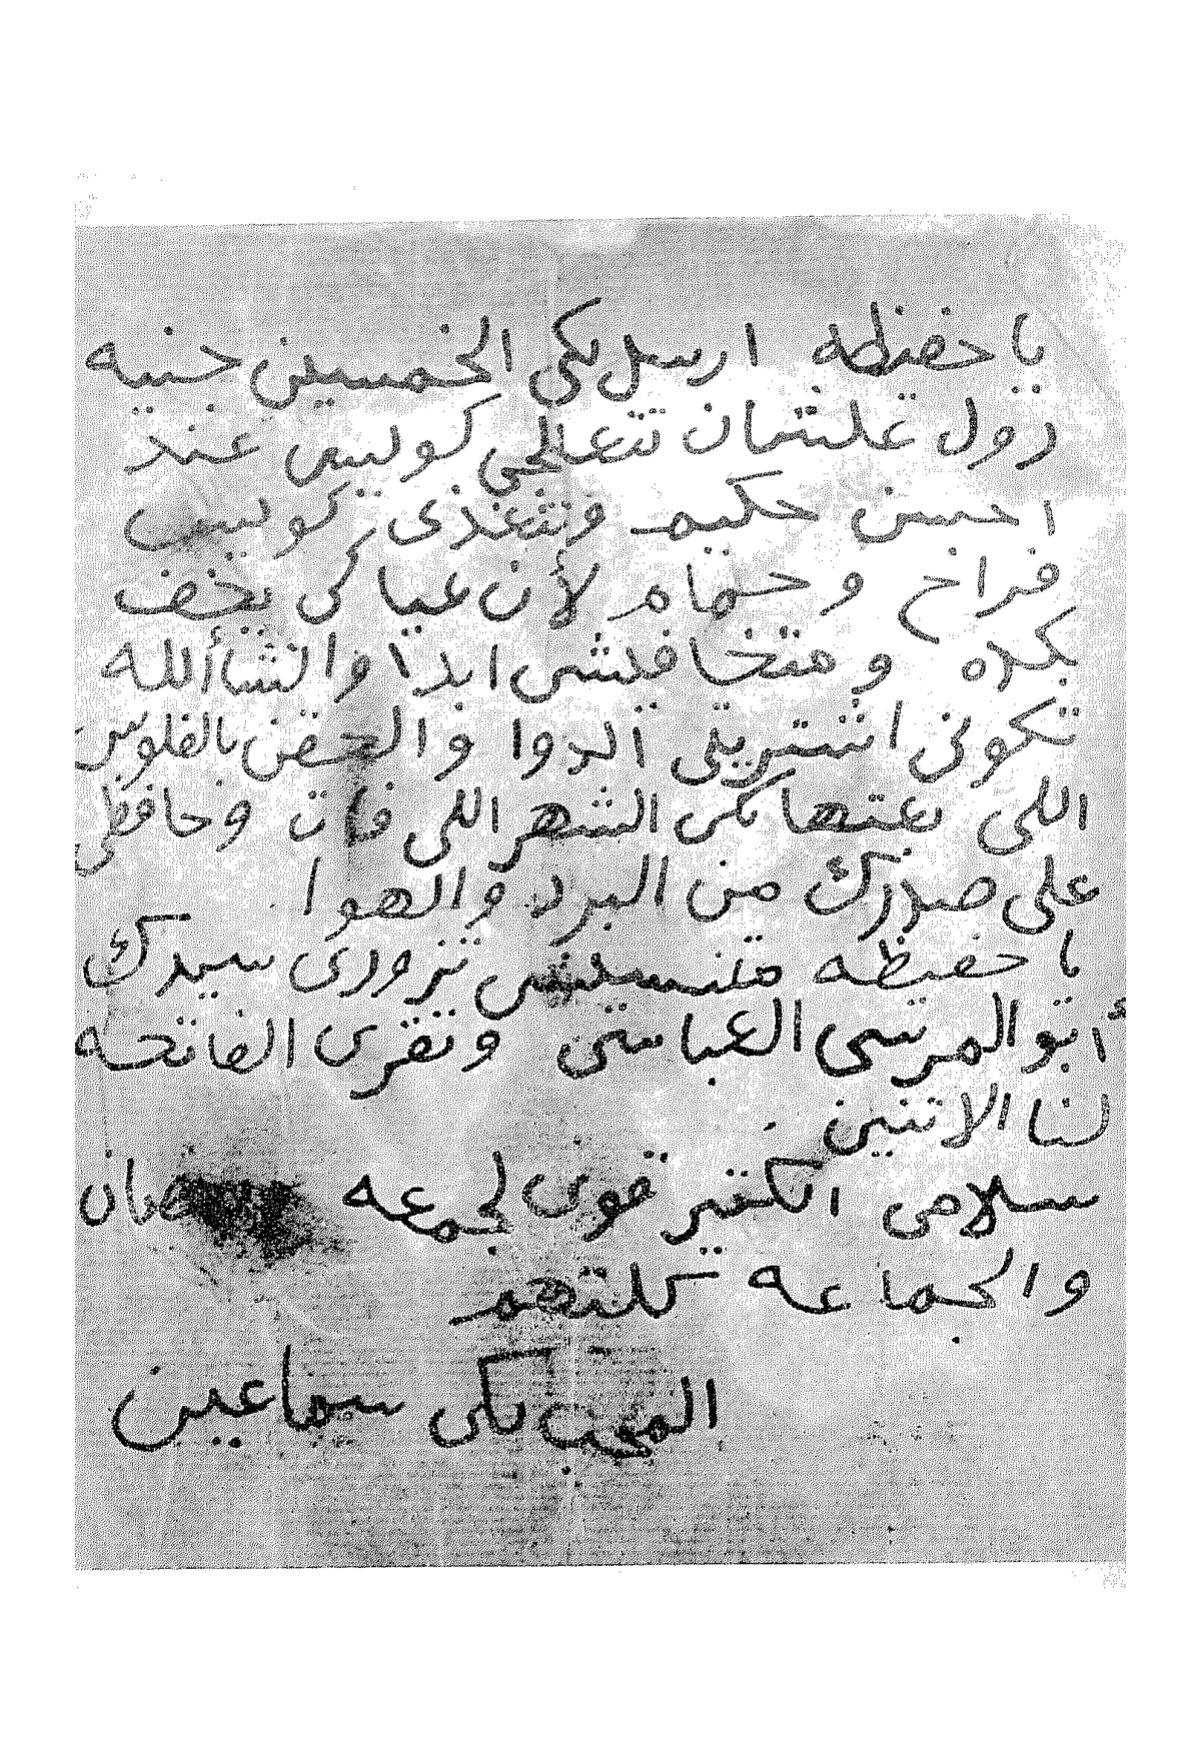 يا حفيظه ارسل لكى الخمسين جنيه
دول علشان تتعالجى كويس عند
احسن حكيم وتتغذى كويس
فراخ وحمام لأن عياكى يخف
بكده ومتخافيش ابدا وانشأالله
تكونى اشتريتى الدوا والحقن بالفلوس
اللى بعتها لكى الشهر اللى فات وحافظى
على صدرك من البرد والهوا
يا حفيظه متنسيش تزورى سيدك
أبو المرسى العباسى وتقرى الفاتحه
لنا الاتنين .
سلامى الكتير قوى لجمعه
والجماعه كلتهم
المحب لكى سماعين